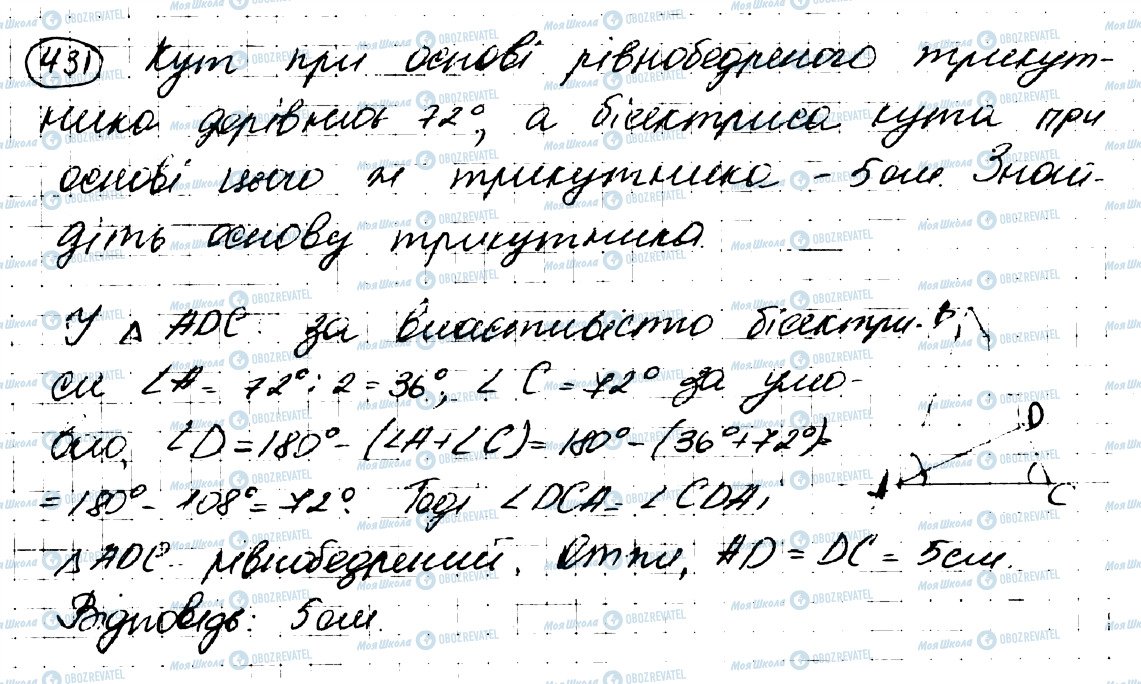 431 Кут при основі рівнобедреного трикут-
ника дорівнює 72°, а бісектриса кута при
основі цього ж трикутника - 5 см. Знай-
діть основу трикутника.
У △ ADC за властивістю бісектри- B
си ∠A = 72° : 2 = 36°, ∠C = 72° за умо-
вою, ∠D = 180° - (∠A + ∠C) = 180° - (36° + 72°) =
= 180° - 108° = 72°. Тоді ∠DCA = ∠CDA і
△ ADC рівнобедрений. Отже, AD = DC = 5 см.
Відповідь: 5 см.
D
A
C
Моя Школа OBOZREVATEL